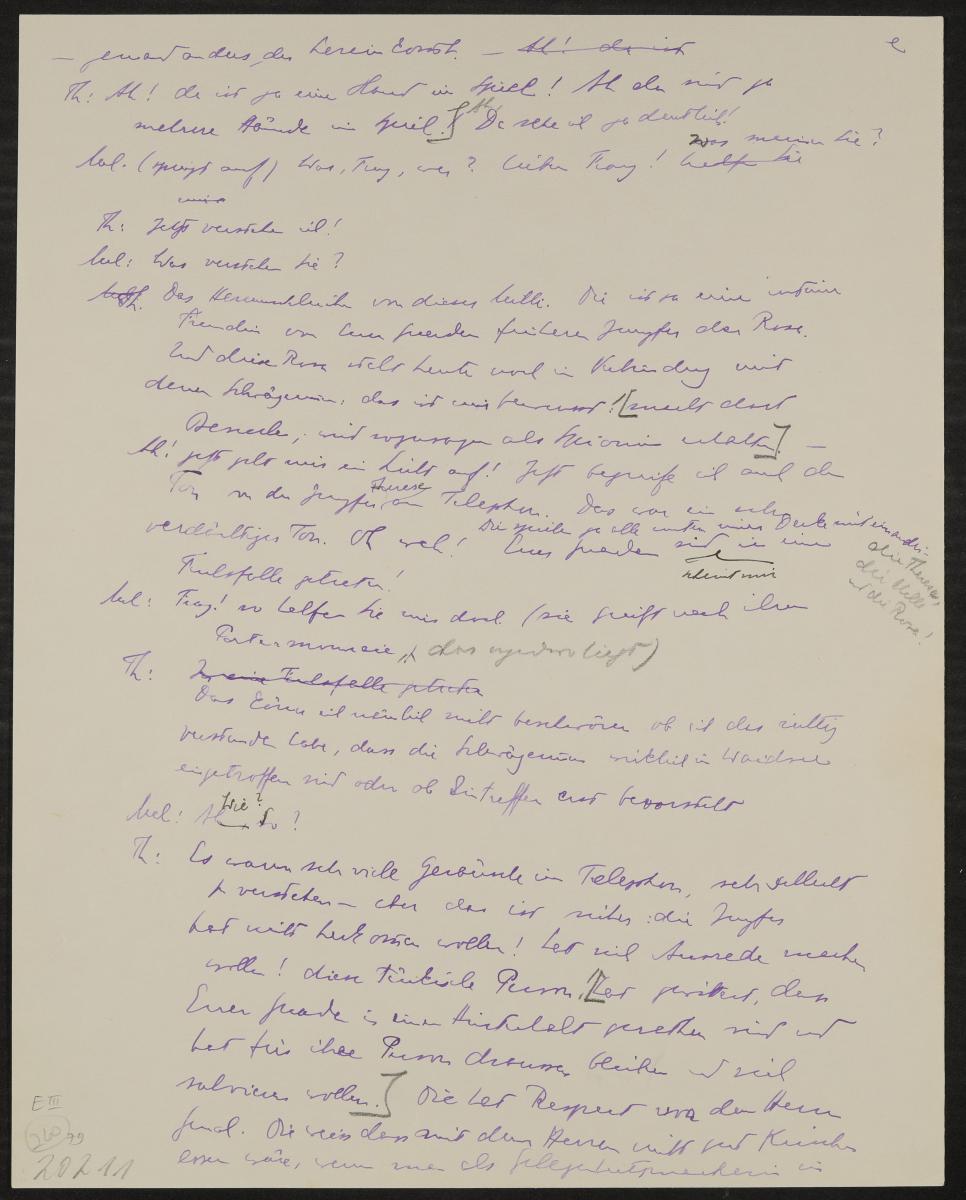 — jemand anders, der herein kommt. — Ah! da ist
e
Th: Ah! da ist ja eine Hand im Spiel! Ah da sind ja
mehrere Hände im Spiel! Ah, Da sehe ich ja deutlich!
was meinen Sie?
Mel. (springt auf) Was, Franz, was? Lieber Franz! helfe Sie
mir
Th: Jetzt verstehe ich!
Mel: Was verstehen Sie?
Th. Das Herumschleichen von dieser Milli. Die ist ja eine intime
Freundin von Euer Gnaden früherer Jungfer der Rosa.
Und diese Rosa steht heute noch in Verbindung mit
denen Schrägemüs: das ist uns bewusst! [macht dort
Besuche, wird sozusagen als Spionin erhalten] —
Ah! jetzt geht mir ein Licht auf! Jetzt begreife ich auch den
Ton von der Jungfer Therese am Telephon. Das war ein sehr
Die spielen ja alle unter einer Decke miteinander
verdächtiger Ton. Oh weh! Euer Gnaden sind in eine
scheint mir
die Therese,
die Milli
und die Rosa!
Fuchsfalle getreten!
Mel: Franz! so helfen Sie mir doch (sie greift nach ihrem
Portemonnaie, das irgendwo liegt)
Th: In eine Fuchsfalle getreten
Das könnte ich nämlich nicht beschwören ob ich das richtig
verstanden habe, dass die Schrägemüs wirklich in Waidsee
eingetroffen sind oder ob Eintreffen erst bevorsteht
Mel: Ah Wie? So?
Th: Es waren sehr viele Geräusche im Telephon, sehr schlecht
zu verstehen — aber das ist sicher: die Jungfer
hat nicht herkommen wollen! hat sich Ausrede machen
wollen! diese tückische Person! [hat gewittert, dass
Euer Gnaden in einen Hinterhalt geraten sind und
hat für ihre Person draussen bleiben und sich
salvieren wollen.] Die hat Respect vor dem Herrn
Gemal. Die weis dass mit dem Herren nicht gut Kirschen
essen wäre, wenn man als Gelegenheitsmacherin in
E III
20211